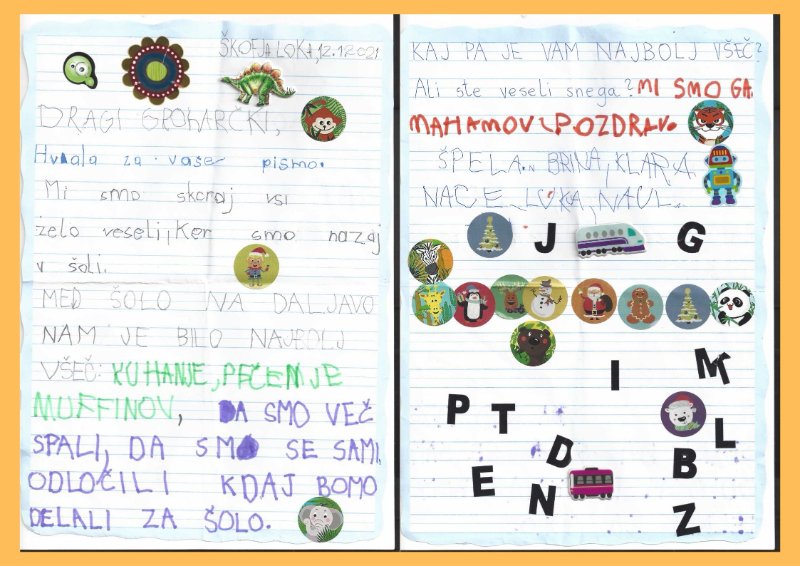 ŠKOFJA LOKA, 12.1.2021
DRAGI GROHARČKI,
Hvala za vaše pismo.
Mi smo skoraj vsi
zelo veseli, Ker smo nazaj
v šoli.
MED ŠOLO NA DALJAVO
NAM JE BILO NAJBOLJ
VŠEČ: KUHANJE, PEČEMJE
MUFFINOV, DA SMO VEČ
SPALI, DA SMO SE SAMI
ODLOČILI KDAJ BOMO
DELALI ZA ŠOLO.
KAJ PA JE VAM NAJBOLJ VŠEČ?
Ali ste veseli snega? MI SMO GA.
MAHAMO V POZDRAV.
ŠPELA, BRINA, KLARA,
NACE, LUKA, NAUL.
J G
I M
P T L
D B
E N Z